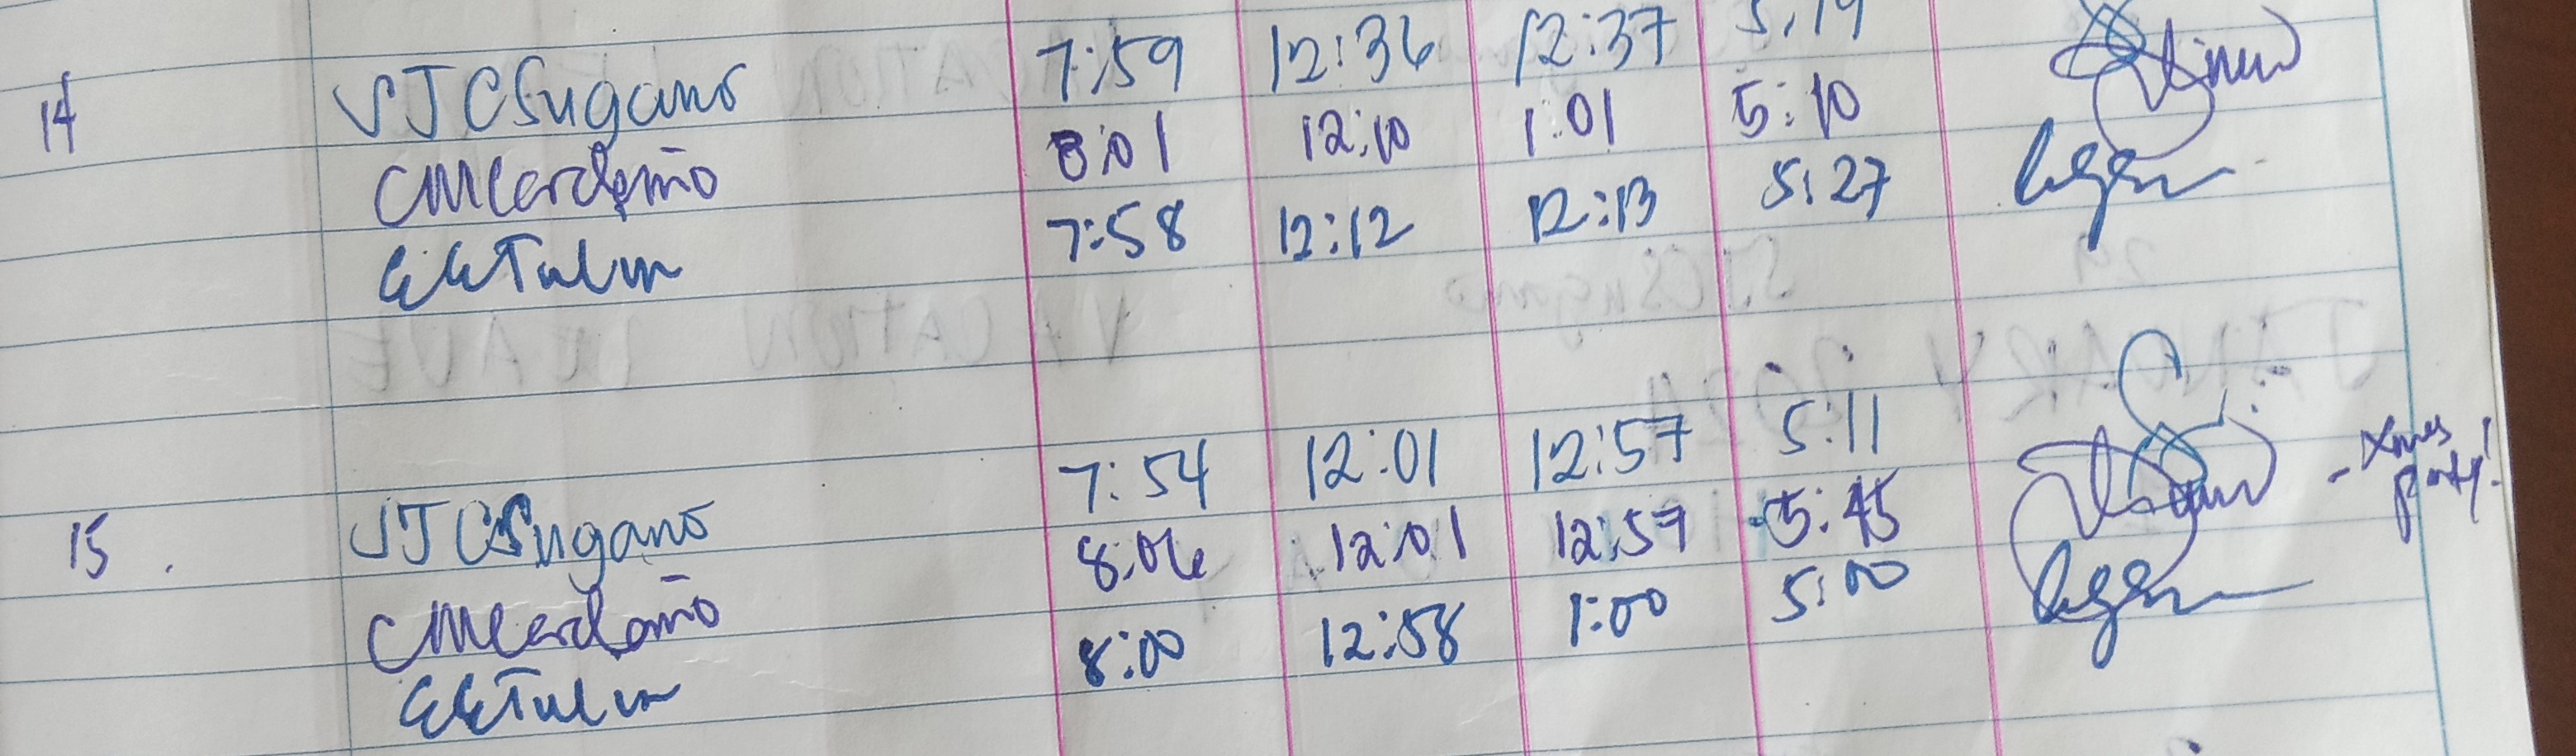 14 SJCSugano 7:59 12:36 12:37 5:19
CMCardeño 8:01 12:10 1:01 5:10
7:58 12:12 12:13 5:27
15 . SJCSugano 7:54 12:01 12:57 5:11
CMCardeño 8:06 12:01 12:57 5:45 - Xmas
party!
8:00 12:58 1:00 5:00